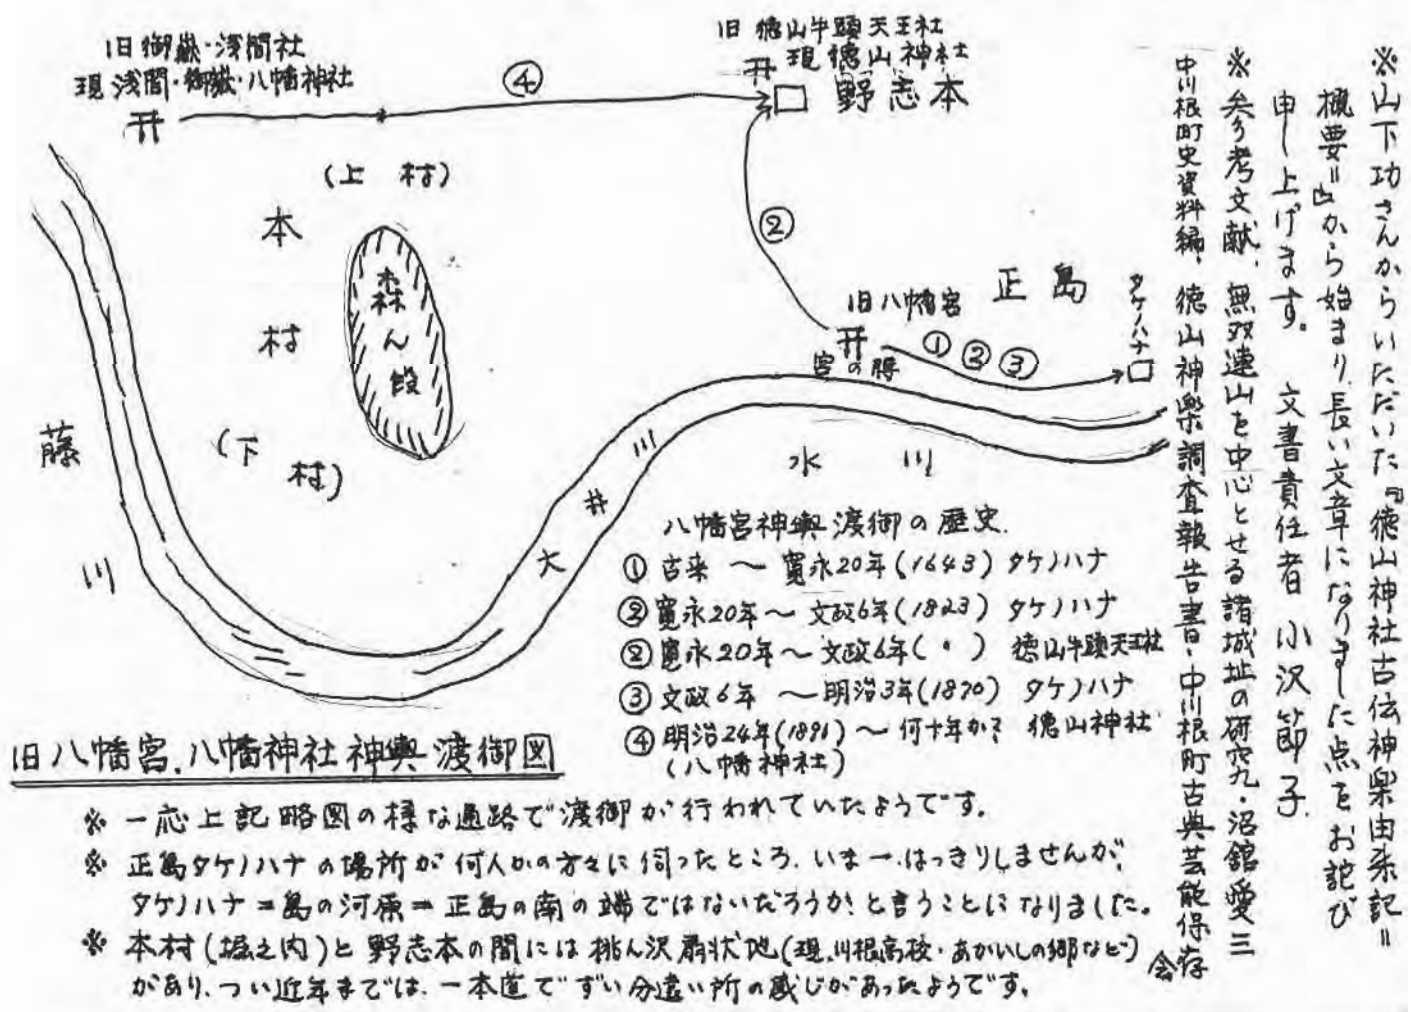 ※山下功さんからいただいた『徳山神社古伝神楽由来記="
概要="』から始まり、長い文章になりました点をお詫び
申し上げます。 文書責任者 小沢節子
※参考文献、無双連山を中心とせる諸城址の研究・沼舘愛三
中川根町史資料編、徳山神楽調査報告書・中川根町古典芸能保存会
旧御嶽・浅間社
現浅間・御嶽・八幡神社
④
旧 徳山牛頭天王社
現 徳山神社
野志本
(上村)
本村
森ん段
(下村)
②
正島
旧八幡宮
宮の
① ② ③
タケノハナ
藤川
大井川
水川
八幡宮神輿渡御の歴史
① 古来 〜 寛永20年(1643) タケノハナ
② 寛永20年〜文政6年(1823) タケノハナ
② 寛永20年〜文政6年(〃) 徳山牛頭天王社
③ 文政6年 〜明治3年(1870) タケノハナ
④ 明治24年(1891)〜何十年か? 徳山神社
(八幡神社)
旧八幡宮.八幡神社神輿渡御図
※ 一応上記略図の様な通路で渡御が行われていたようです。
※ 正島タケノハナの場所が何人かの方々に伺ったところ、いま一はっきりしませんが、
タケノハナ=島の河原=正島の南の端ではないだろうか!と言うことになりました。
※ 本村(堀之内)と野志本の間には桃ん沢扇状地(現、川根高校・あかいしの郷など)
があり、つい近年までは、一本道でずい分遠い所の感じがあったようです。